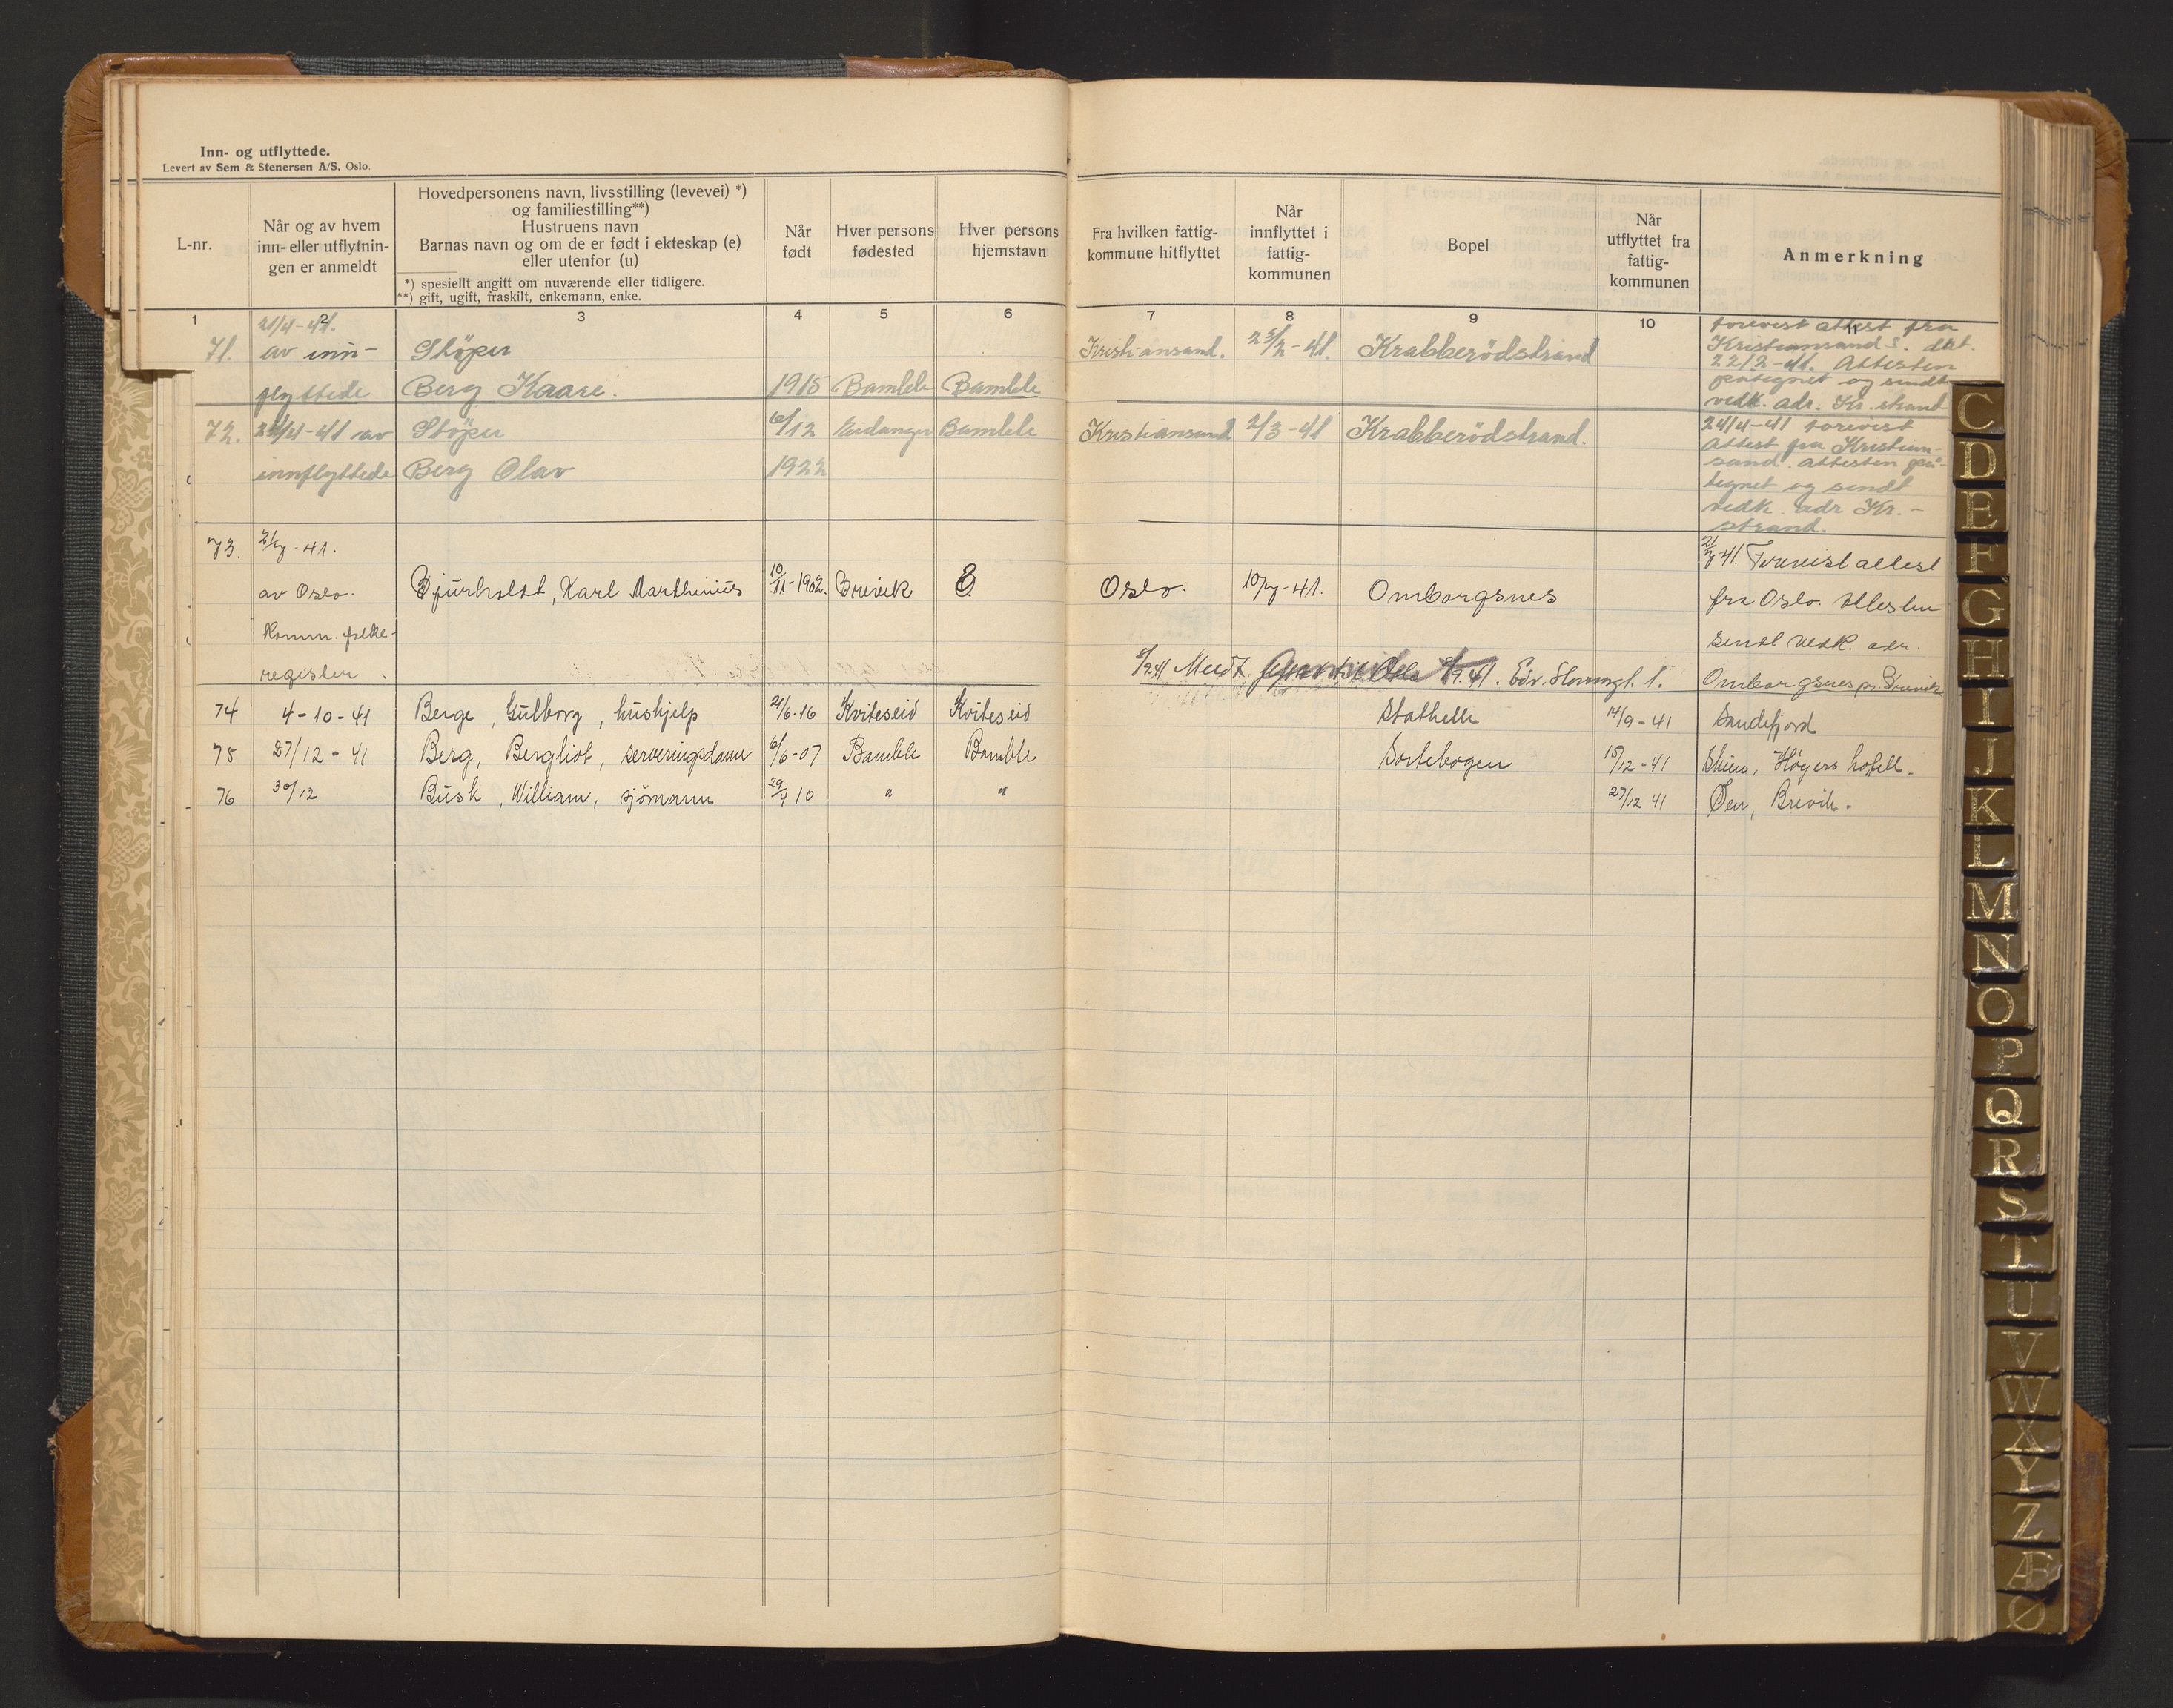 Inn- og utflyttede.
Levert av Sem & Stenersen A/S. Oslo.
L-nr.
Når og av hvem
inn- eller utflytnin-
gen er anmeldt
Hovedpersonens navn, livsstilling (levevei) *)
og familiestilling**)
Hustruens navn
Barnas navn og om de er født i ekteskap (e)
eller utenfor (u)
*) spesiellt angitt om nuværende eller tidligere.
**) gift, ugift, fraskilt, enkemann, enke.
Når
født
Hver persons
fødested
Hver persons
hjemstavn
Fra hvilken fattig-
kommune hitflyttet
Når
innflyttet i
fattig-
kommunen
Bopel
Når
utflyttet fra
fattig-
kommunen
Anmerkning
1 3 4 5 6 7 8 9 10 11
21/4-41.
71. av inn- Støper Kristiansand. 23/2-41. Krabberødstrand
flyttede Berg Kaare. 1915 Bamble Bamble
forevist attest fra
Kristiansand S. dat.
22/2-41. Attesten
påtegnet og sendt
vedk. adr. Kr. strand
72. 24/4-41 av Støper 6/12 Eidanger Bamble Kristiansand 2/3-41 Krabberødstrand.
innflyttede Berg Olav 1922
24/4-41 forevist
Attest fra Kristian-
sand. attesten på-
tegnet og sendt
vedk. adr Kr.-
strand.
73. 21/7-41.
av Oslo. Bjurholdt, Karl Marthinius 10/11-1902. Brevik Oslo. 10/7-41. Omborgsnes
Komm. folke-
register.
21/7-41. Forevist attest
fra Oslo. Attesten
sendt vedk. adr.
Omborgsnes pr. Brevik
9.41 Meldt Oslo 9.41. Edv. Stormsgt. 1.
74 4-10-41 Berge, Gulborg, hushjelp 21/6-16 Kviteseid Kviteseid Stathelle 14/9-41 Sandefjord
75 27/12-41 Berg, Bergliot, serveringsdame 6/6-07 Bamble Bamble Sortebogen 15/12-41 Skien, Høyers hotell.
76 30/12 Busk, William, sjömann 29/4 10 " " 27/12 41 Øen, Brevik.
C
D
E
F
G
H
I
J
K
L
M
N
O
P
Q
R
S
T
U
V
W
X
Y
Z
Æ
Ø